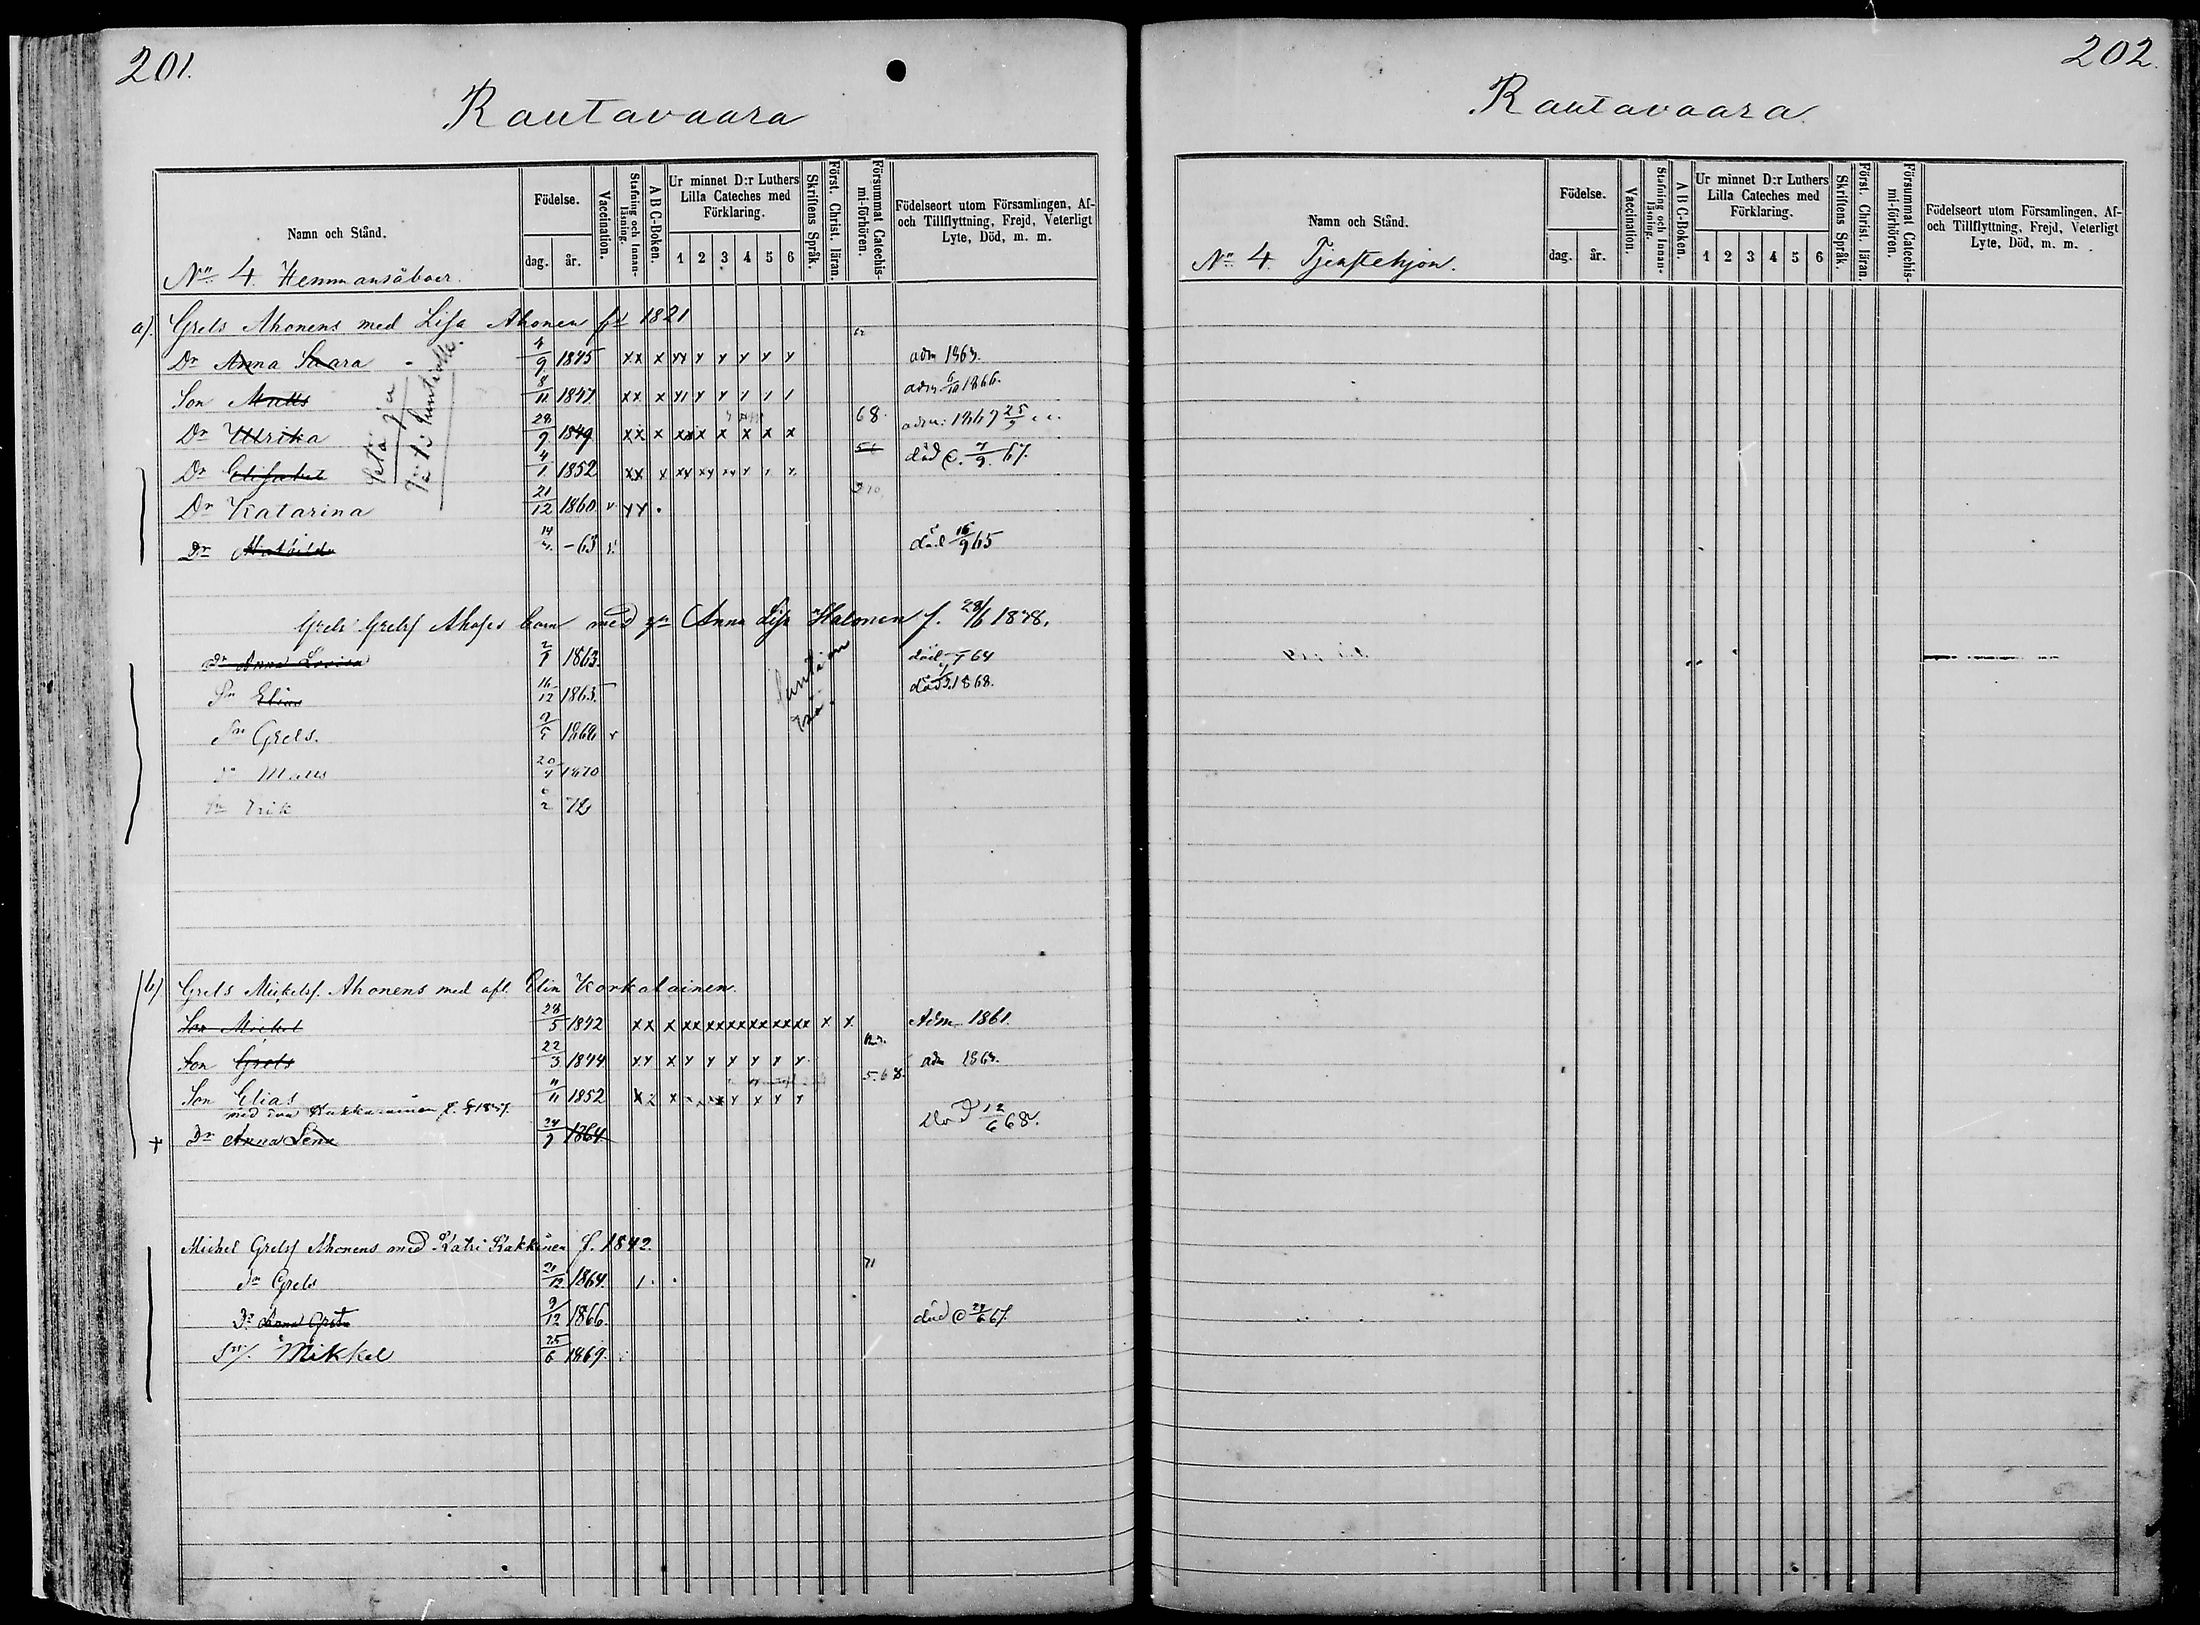 201.
Rautavaara
Namn och Stånd.
Födelse.
dag. år.
Vaccination.
Stafning och Innanläsning.
A B C-Boken.
Ur minnet D:r Luthers Lilla Cateches med Förklaring.
1 2 3 4 5 6
Skriftens Språk.
Först. Christ. läran.
Försummat Catechismi-förhören.
Födelseort utom Församlingen, Af- och Tillflyttning, Frejd, Veterligt Lyte, Död, m. m.
No 4. Hemmansåboer.
a). Grels Ahonens med Lisa Ahonen fd 1821
Dr Anna Saara 4/9 1845 xx x xx x x x x x adm 1863.
Son Matts 8/11 1847 xx x adm. 1866.
Dr Ulrika 28/9 1849 xx x xxx x x x x x 68. adm: 1867 25/5
Dr Elisabet 4/1 1852 xx x död 7/9 67.
Dr Katarina 21/12 1860 v xx .
Dr Mathilda 14 -63 död 16/9 65
Grels Grelsf Ahoses barn med Anna Lisa Halonen f. 28/6 1838.
Dr Anna Lovisa 2/1 1863 död 64
Sn Elias 16/12 1863. död 1868.
Sn Grels. 1866 v
Sn Matts 20/4 1870
Sn Erik 6/2 72
b) Grels Mickelsf. Ahonens med afl. Elin Korkalainen.
Son Mickel 28/5 1842 xx x xx xx xx xx xx xx x x Adm 1861.
Son Grels 22/3 1844 xx x x x x x x x adm 1863.
Son Elias 11/11 1852 5.68.
+ Dr Anna Lena 24/9 1864 död 12/6 68.
Michel Grelsf Ahonens med Katri Kakkinen f. 1842.
Sn Grels 21/12 1864. 71
Dr Anna Greta 9/12 1866. död 67.
Sn Mikkel 25/6 1869.
202.
Rautavaara.
Namn och Stånd.
Födelse.
dag. år.
Vaccination.
Stafning och Innanläsning.
A B C-Boken.
Ur minnet D:r Luthers Lilla Cateches med Förklaring.
1 2 3 4 5 6
Skriftens Språk.
Först. Christ. läran.
Försummat Catechismi-förhören.
Födelseort utom Församlingen, Af- och Tillflyttning, Frejd, Veterligt Lyte, Död, m. m.
No 4. Tjenstehjon.